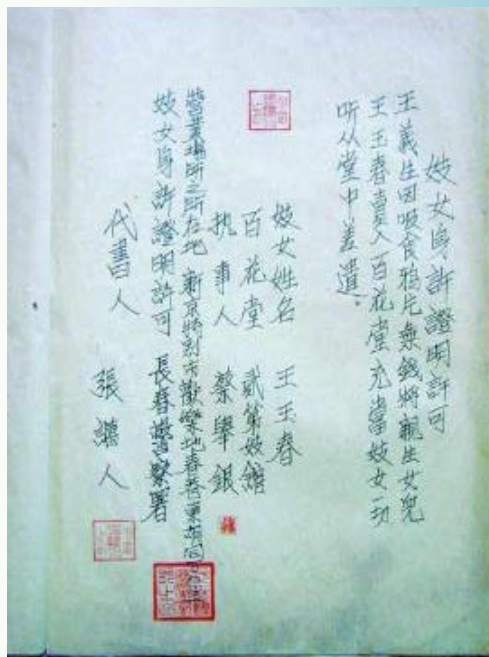 妓女身許證明許可
王義生因吸食鴉片無錢將親生女兒
王玉春賣入百花堂充當妓女一切
听从堂中差遣。
妓女姓名 王玉春
百花堂 貳等妓館
执事人 蔡舉銀
營業場所之所在地 新京特別市歡樂地春
妓女身許證明許可 長春警察署
代書人 張 人